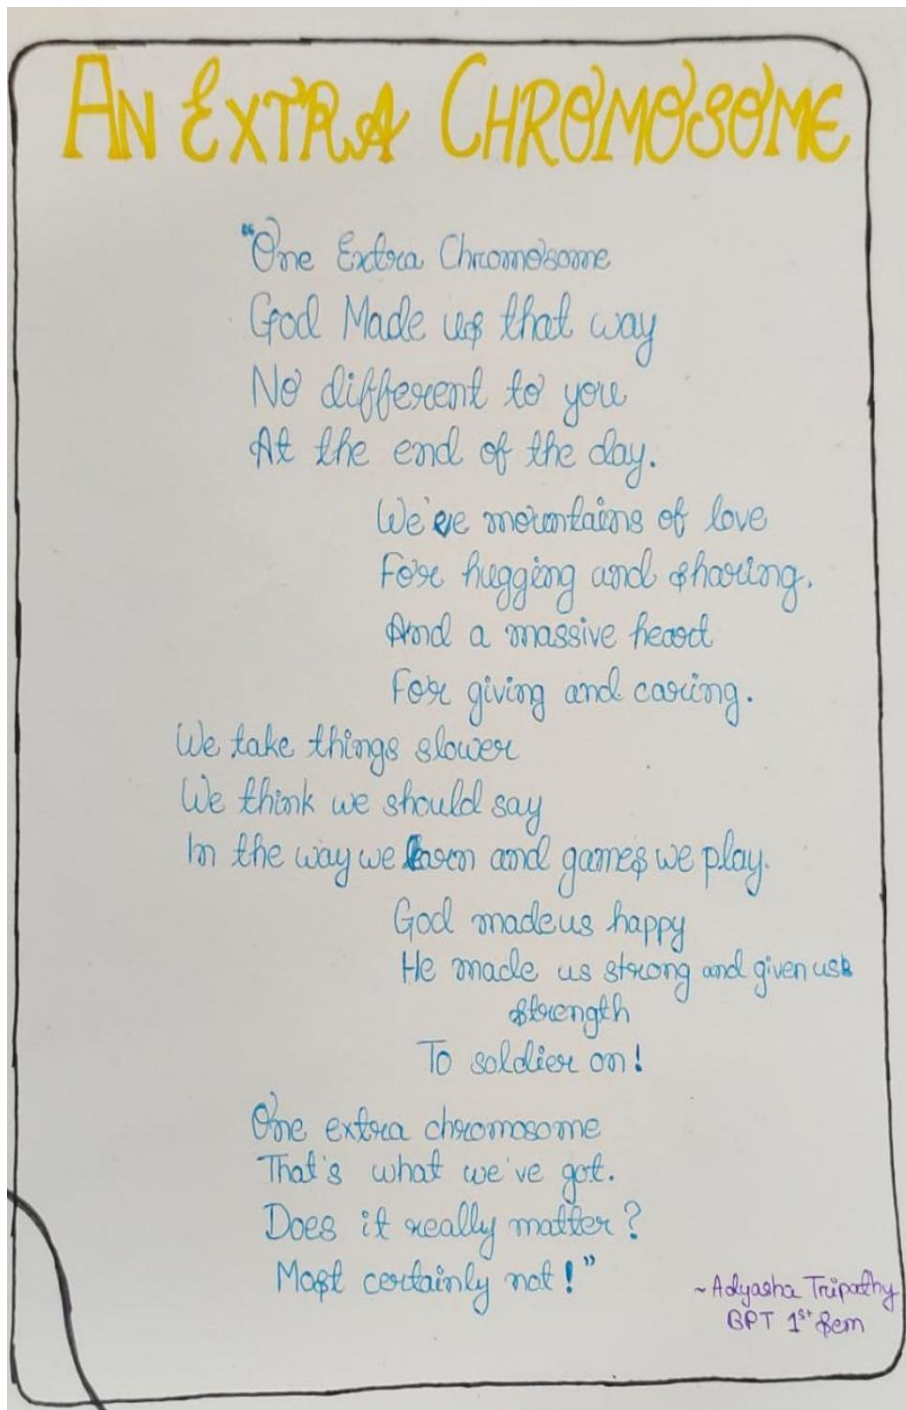 AN EXTRA CHROMOSOME
"One Extra Chromosome
God Made us that way
No different to you
At the end of the day.
We've mountains of love
For hugging and sharing.
And a massive heart
For giving and caring.
We take things slower
We think we should say
In the way we learn and games we play.
God made us happy
He made us strong and given us
strength
To soldier on!
One extra chromosome
That's what we've got.
Does it really matter?
Most certainly not!"
~Adyasha Tripathy
BPT 1st Sem